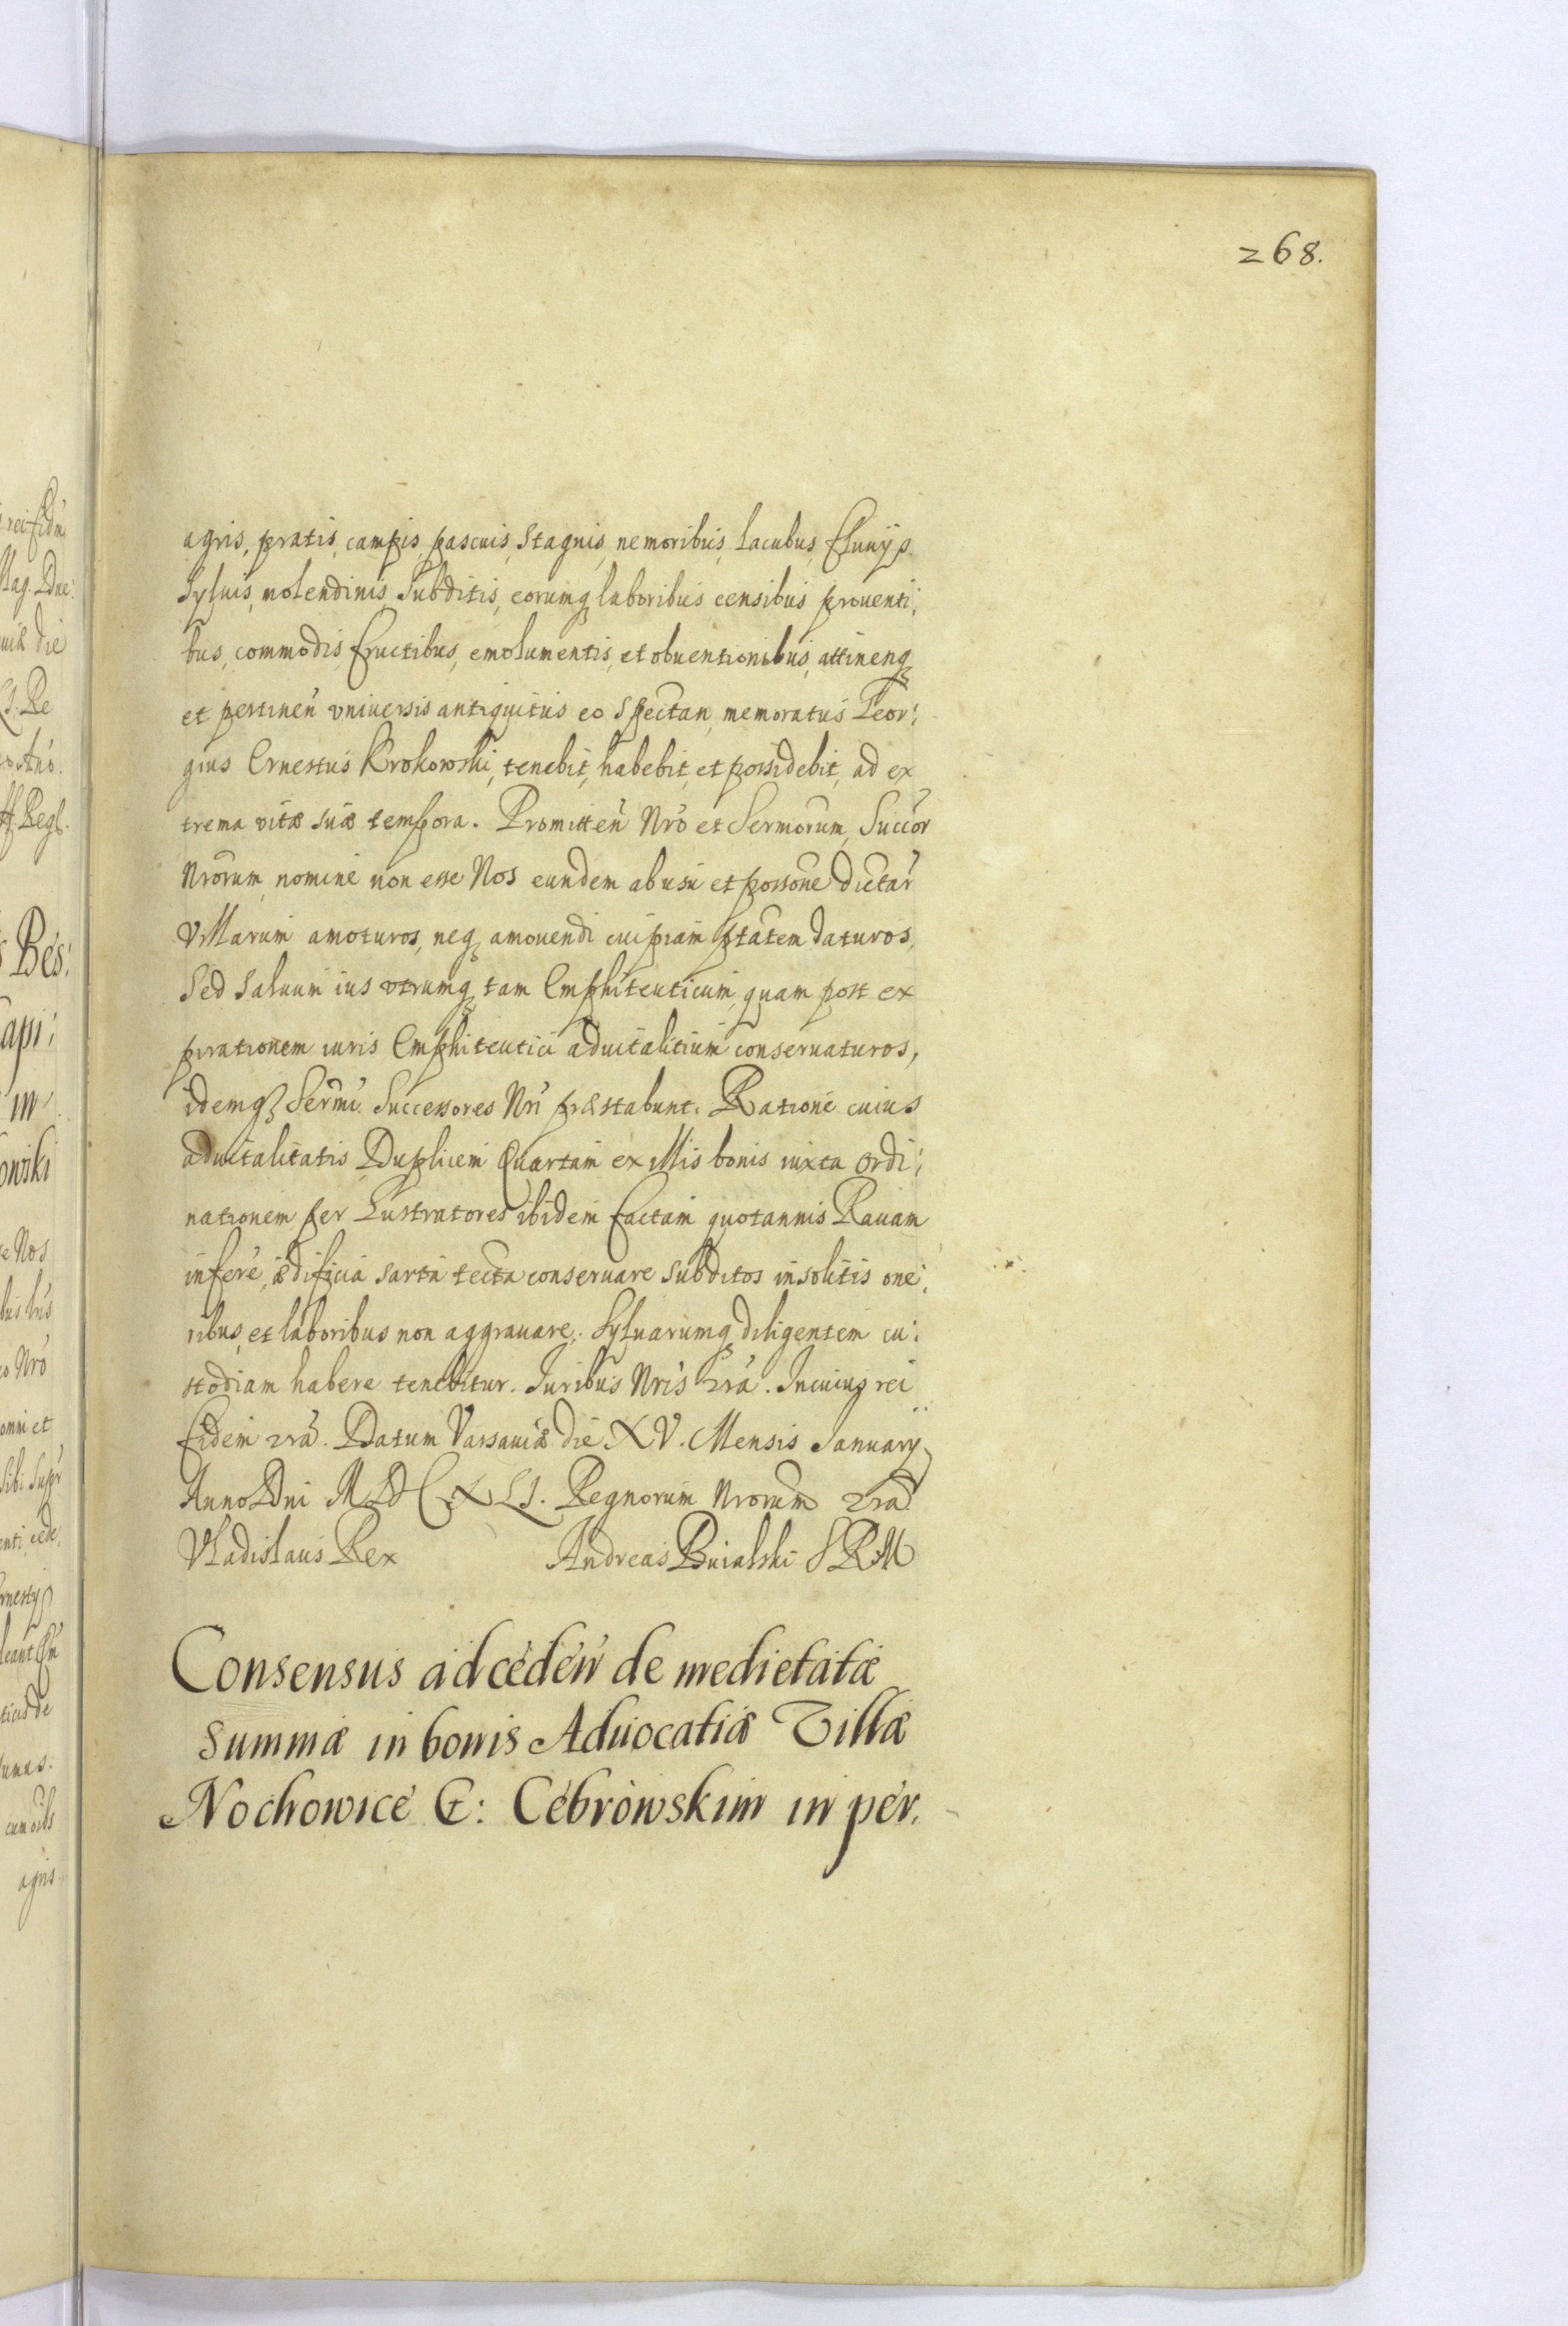 268.
agris, pratis, campis, pascuis, stagnis, nemoribus, Lacubus, fluuijs
Syluis, molendinis, subditis, eorumq laboribus censibus prouenti:
bus, commodis, fructibus, emolumentis, et obuentionibus, attinenq
et pertinen vniuersis antiquitus eo spectan, memoratus Geor:
gius Ernestus Krokowski, tenebit, habebit, et possidebit, ad ex
trema vitæ suæ tempora. Promitten Nro et Sermorum, Succor
Nrorum nomine non esse Nos eundem ab usu et possone dictar
Villarum amoturos, neq amouendi cuipiam ptatem daturos,
Sed saluum ius vtrumq tam Emphiteuticum, quam post ex
pirationem iuris Emphiteutici aduitalitium conseruaturos,
idemq Sermi Successores Nri præstabunt. Ratione cuius
aduitalitatis Duplicem Quartam ex illis bonis iuxta ordi:
nationem per Lustratores ibidem factam quotannis Rauam
infere, ædificia sarta tecta conseruare subditos insolitis one:
ribus, et laboribus non aggrauare, Syluarumq diligentem cu:
stodiam habere tenebitur. Iuribus Nris rra. In cuius rei
fidem rra. Datum Varsauiæ die XV. Mensis January
Anno Dni MDCXLI. Regnorum Nrorum rra
Vladislaus Rex Andreas Buialski SRM
Consensus ad ceden de medietatæ
summæ in bonis Aduocatiæ Villæ
Nochowice G: Cebrowskim in per.